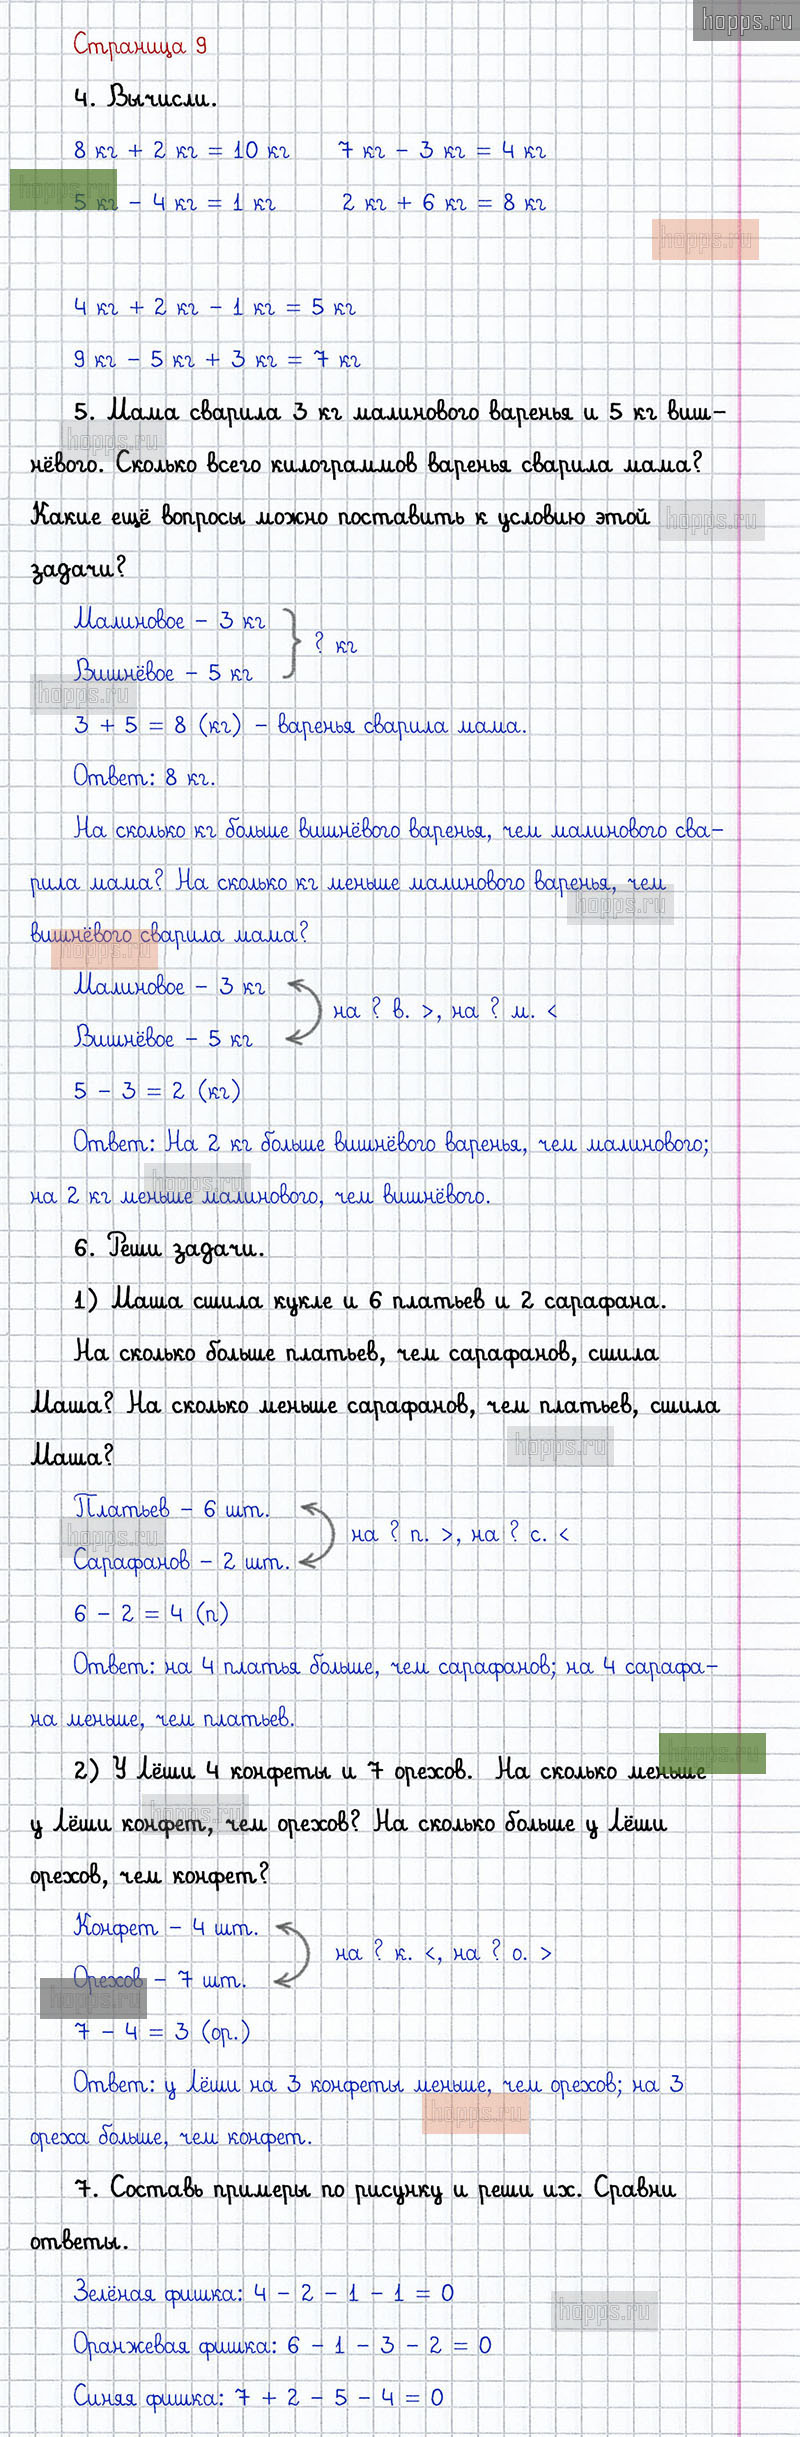 hopps.ru
Страница 9
4. Вычисли.
8 кг + 2 кг = 10 кг 7 кг - 3 кг = 4 кг
hopps.ru
5 кг - 4 кг = 1 кг 2 кг + 6 кг = 8 кг
hopps.ru
4 кг + 2 кг - 1 кг = 5 кг
9 кг - 5 кг + 3 кг = 7 кг
5. Мама сварила 3 кг малинового варенья и 5 кг виш-
hopps.ru
нёвого. Сколько всего килограммов варенья сварила мама?
Какие ещё вопросы можно поставить к условию этой
hopps.ru
задачи?
Малиновое - 3 кг
? кг
Вишнёвое - 5 кг
hopps.ru
3 + 5 = 8 (кг) - варенья сварила мама.
Ответ: 8 кг.
На сколько кг больше вишнёвого варенья, чем малинового сва-
рила мама? На сколько кг меньше малинового варенья, чем
hopps.ru
вишнёвого сварила мама?
hopps.ru
Малиновое - 3 кг
на ? в. >, на ? м. <
Вишнёвое - 5 кг
5 - 3 = 2 (кг)
Ответ: На 2 кг больше вишнёвого варенья, чем малинового;
hopps.ru
на 2 кг меньше малинового, чем вишнёвого.
6. Реши задачи.
1) Маша сшила кукле и 6 платьев и 2 сарафана.
На сколько больше платьев, чем сарафанов, сшила
Маша? На сколько меньше сарафанов, чем платьев, сшила
hopps.ru
Маша?
Платьев - 6 шт.
на ? п. >, на ? с. <
hopps.ru
Сарафанов - 2 шт.
6 - 2 = 4 (п)
Ответ: на 4 платья больше, чем сарафанов; на 4 сарафа-
на меньше, чем платьев.
hopps.ru
2) У Лёши 4 конфеты и 7 орехов. На сколько меньше
hopps.ru
у Лёши конфет, чем орехов? На сколько больше у Лёши
орехов, чем конфет?
Конфет - 4 шт.
на ? к. <, на ? о. >
Орехов - 7 шт.
hopps.ru
7 - 4 = 3 (ор.)
Ответ: у Лёши на 3 конфеты меньше, чем орехов; на 3
hopps.ru
ореха больше, чем конфет.
7. Составь примеры по рисунку и реши их. Сравни
ответы.
Зелёная фишка: 4 - 2 - 1 - 1 = 0
hopps.ru
Оранжевая фишка: 6 - 1 - 3 - 2 = 0
Синяя фишка: 7 + 2 - 5 - 4 = 0